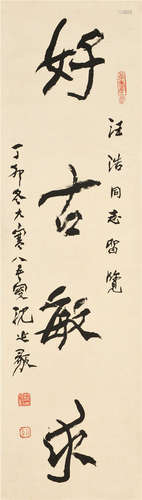 好古敏求
汪浩同志留覽
丁卯冬大寒八五叟沈延毅